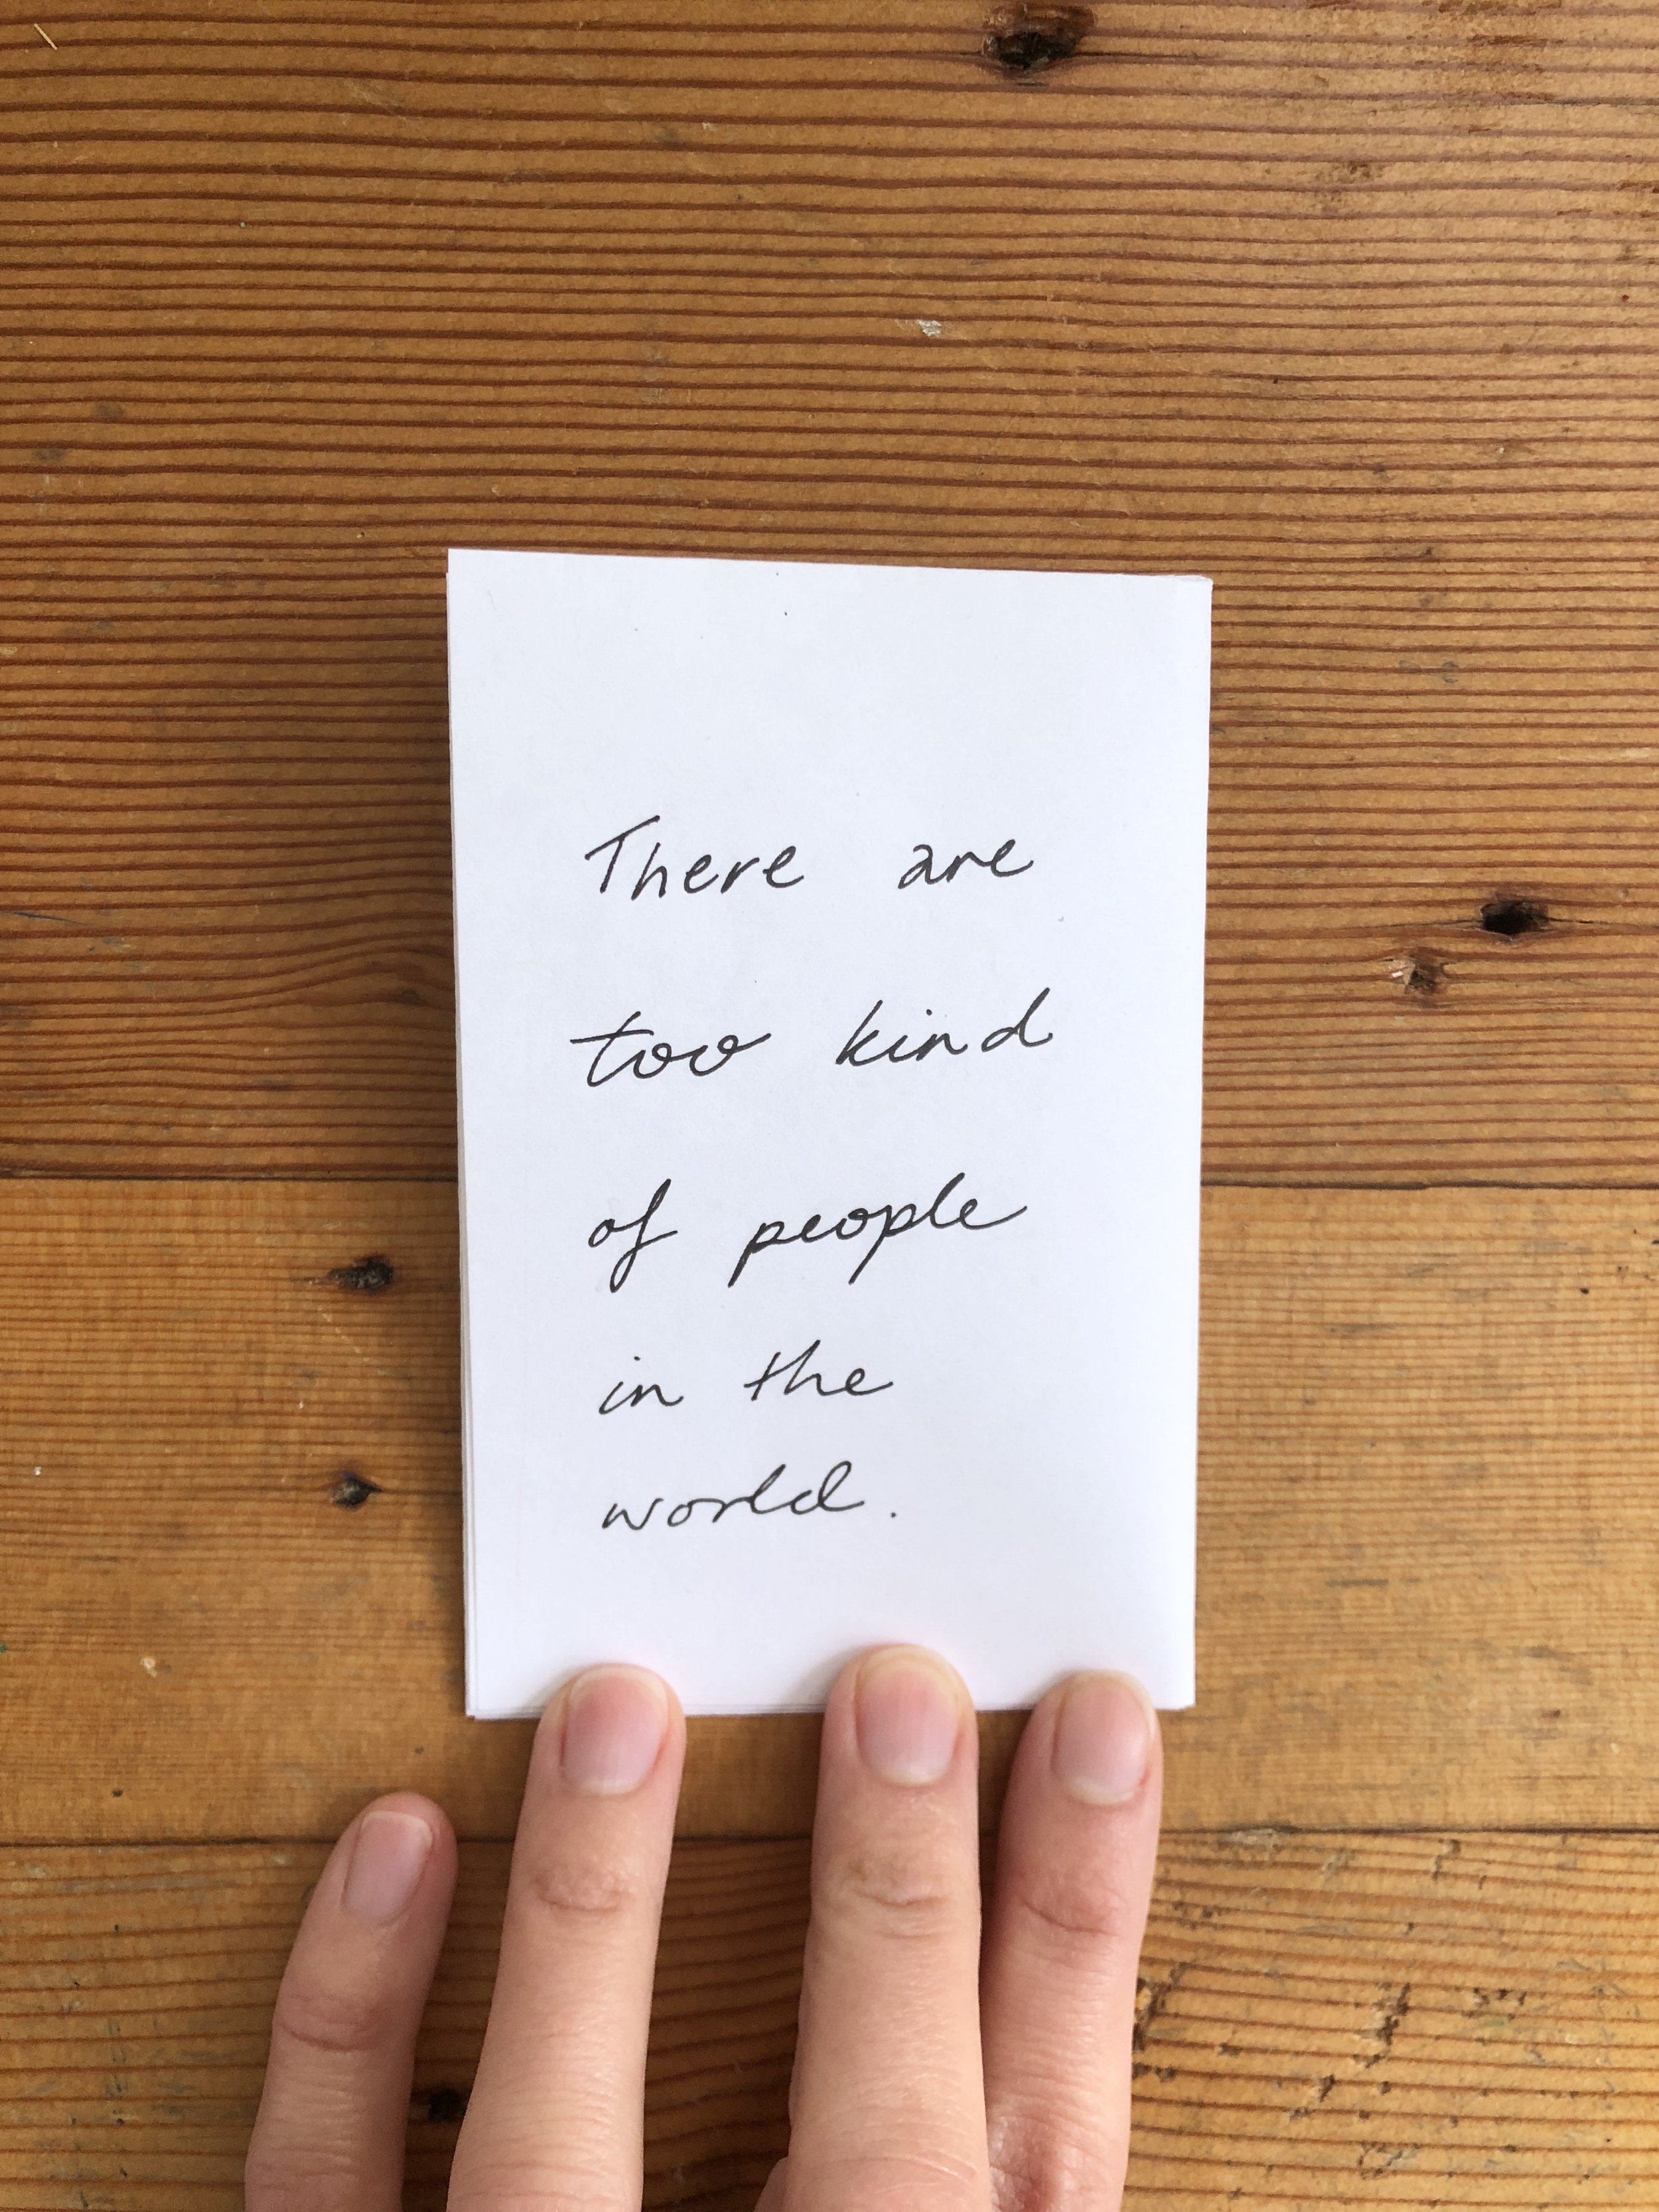 There are
too kind
of people
in the
world.